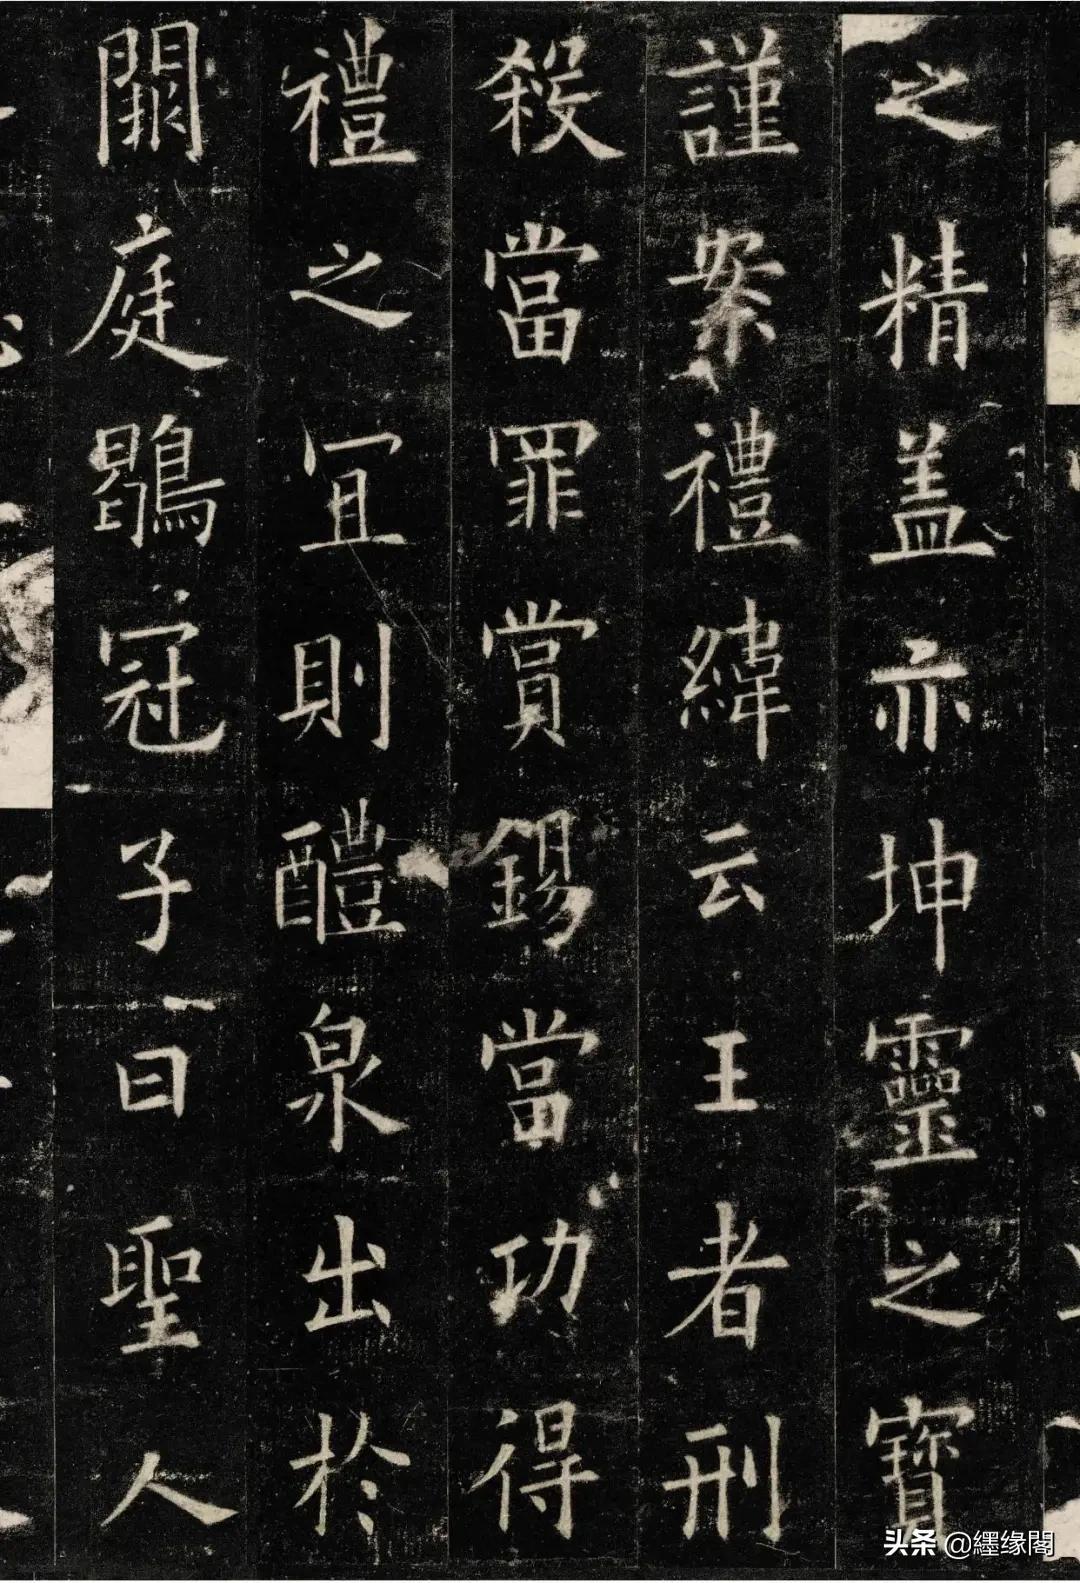 之精盖亦坤靈之寶
謹案禮緯云王者刑
殺當罪賞錫當功得
禮之宜則醴泉出於
闕庭鶡冠子曰聖人
头条 @纆缘閣